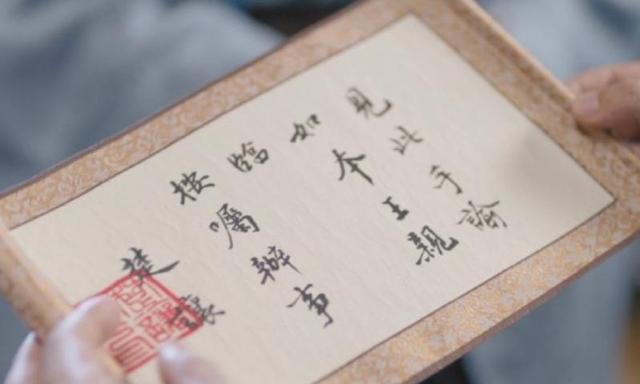 見此手諭
如本王親
臨
按囑辦事
楚